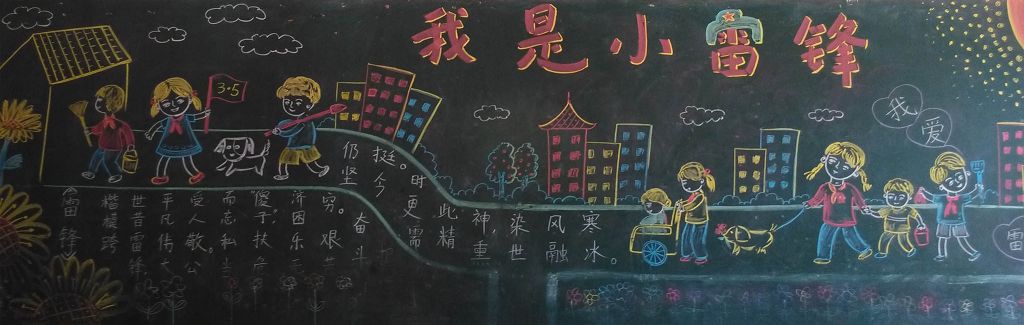 我是小雷锋
3·5
《雷锋》
楷模跨
世昔雷锋,
平凡伟大
受人敬。公
而忘私当
“傻子”,扶危
济困乐无
穷。艰苦
奋斗
仍坚
挺。今
时更需
此精
神,重
染世
风融
寒冰。
我
爱
雷